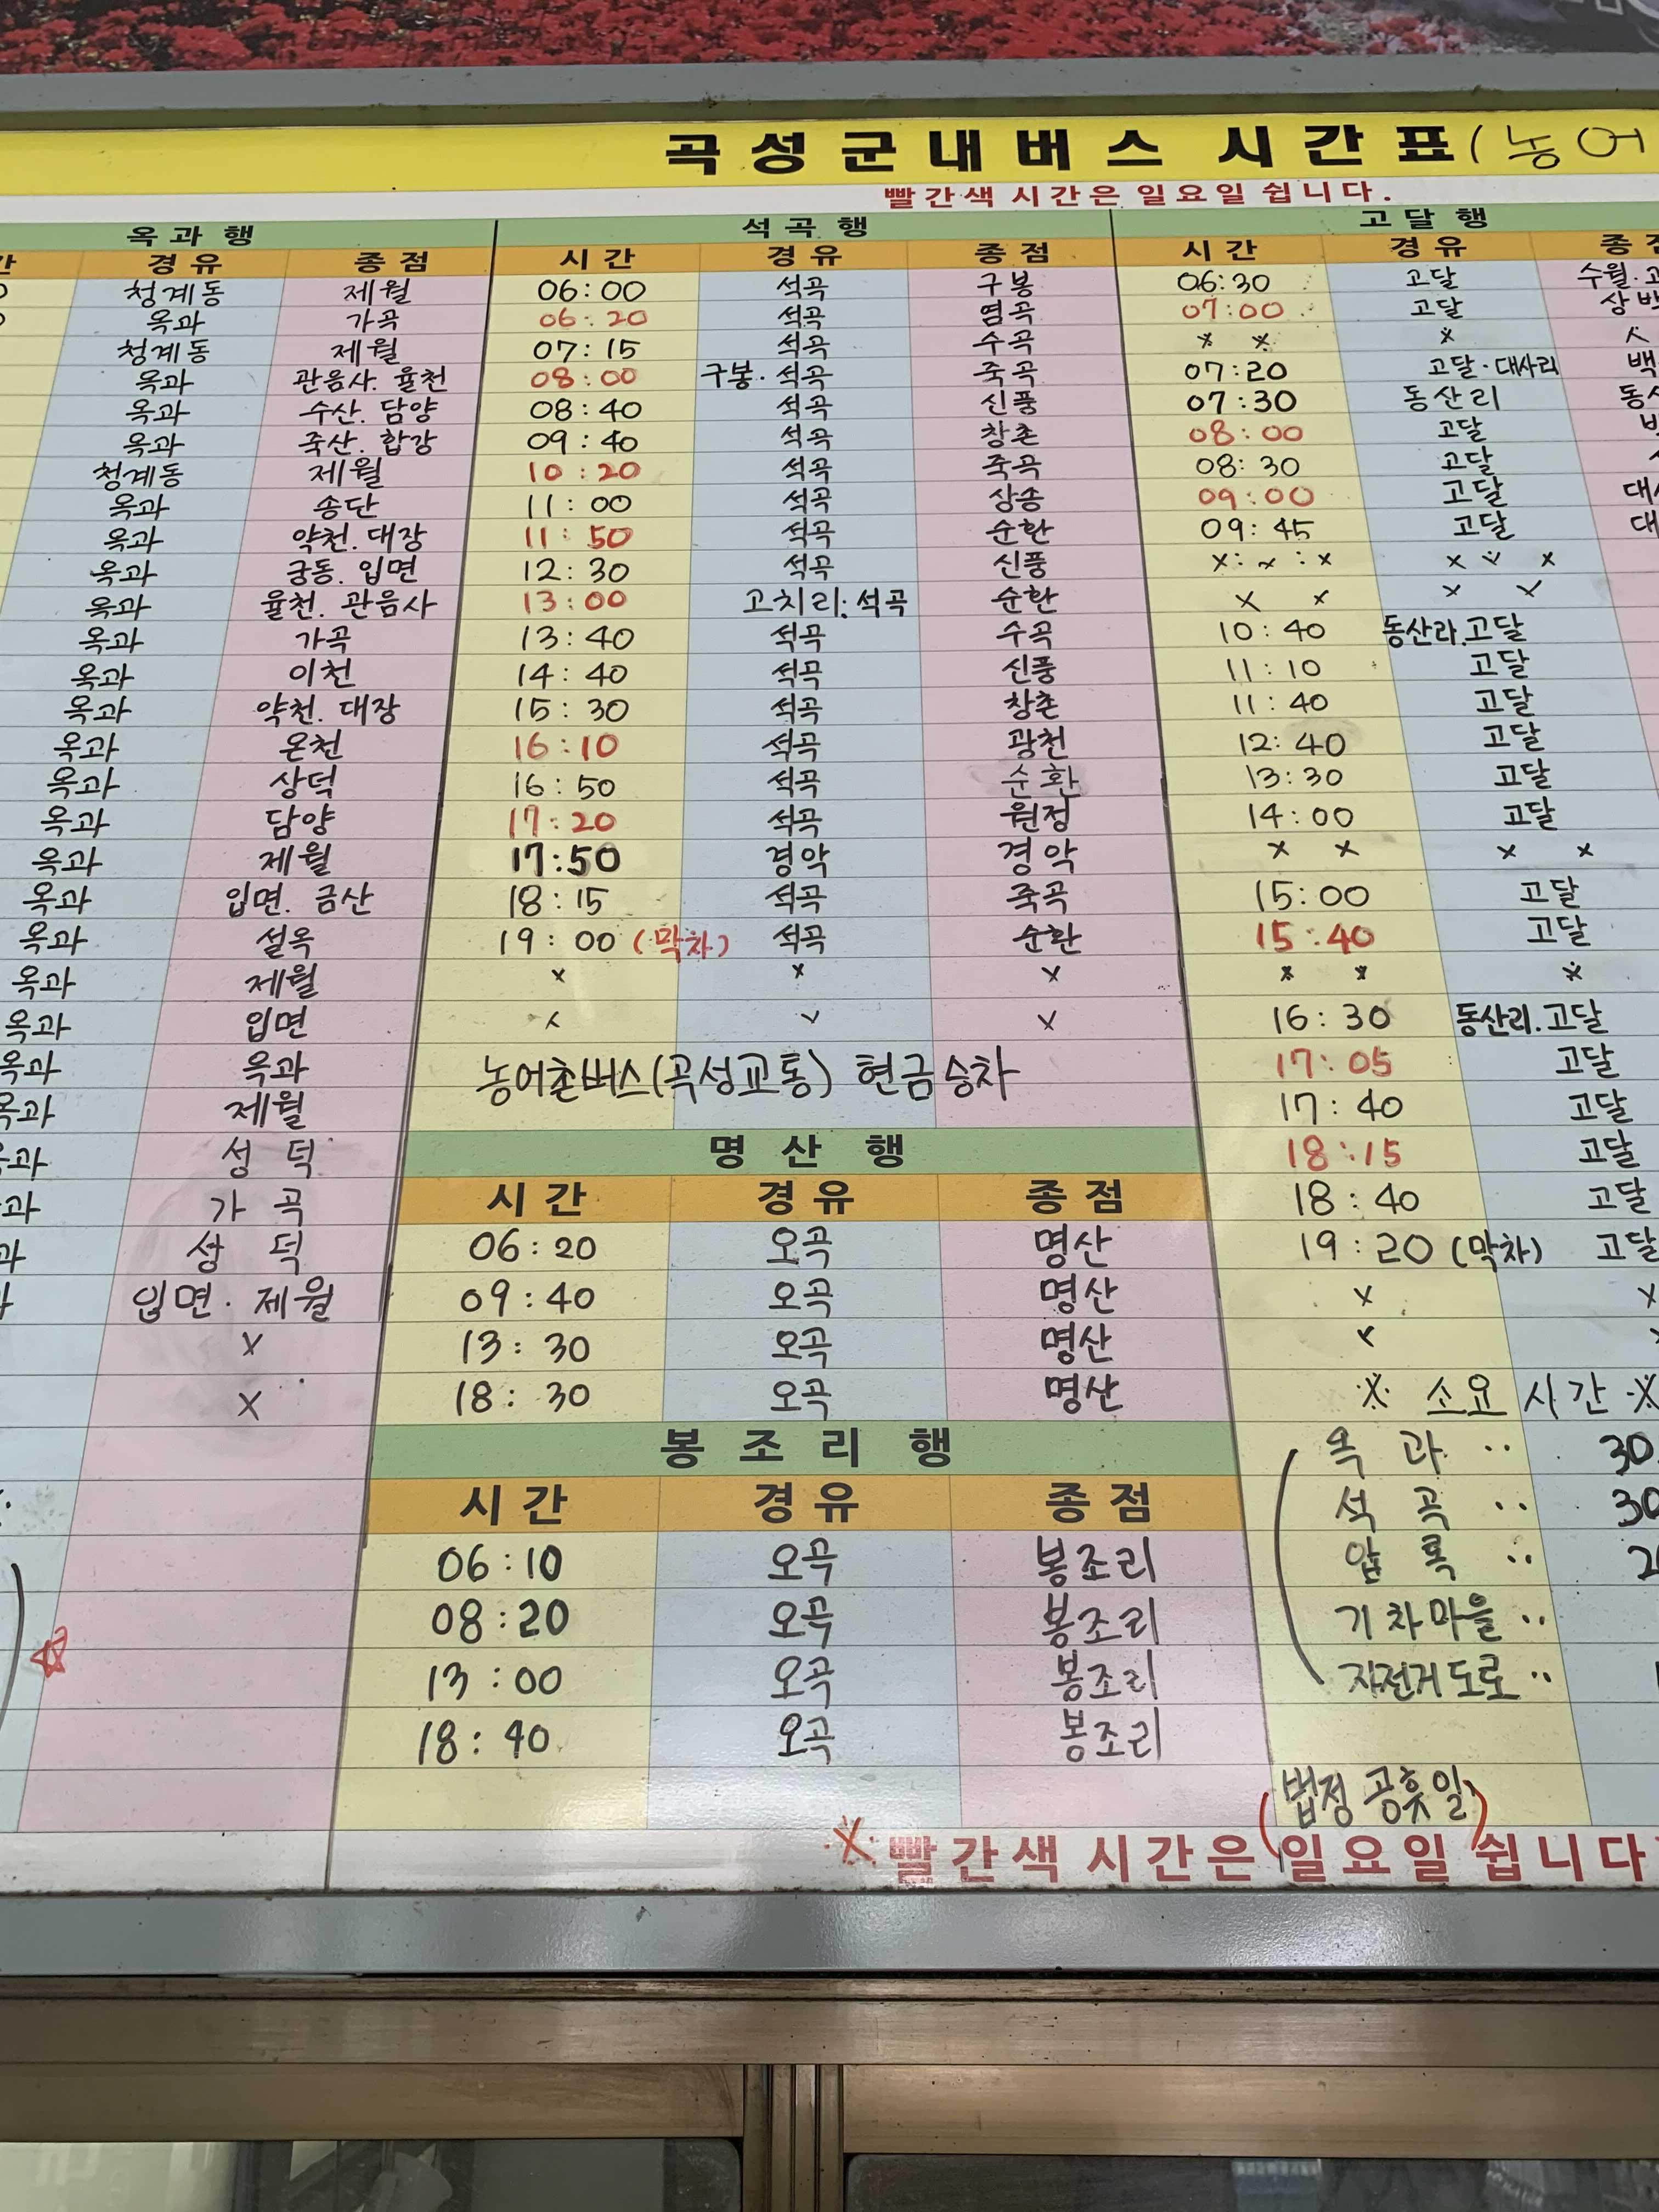 곡성군내버스 시간표(농어
빨간색 시간은 일요일 쉽니다.
옥과행
경유 종점
청계동 제월
옥과 가곡
청계동 제월
옥과 관음사. 율천
옥과 수산. 담양
옥과 죽산. 합강
청계동 제월
옥과 송단
옥과 약천. 대장
옥과 궁동. 입면
옥과 율천. 관음사
옥과 가곡
옥과 이천
옥과 약천. 대장
옥과 온천
옥과 상덕
옥과 담양
옥과 제월
옥과 입면. 금산
옥과 설옥
옥과 제월
옥과 입면
옥과 옥과
옥과 제월
과 성덕
과 가곡
과 성덕
입면. 제월
x
x
석곡행
시간 경유 종점
06:00 석곡 구봉
06:20 석곡 염곡
07:15 석곡 수곡
08:00 구봉. 석곡 죽곡
08:40 석곡 신풍
09:40 석곡 창촌
10:20 석곡 죽곡
11:00 석곡 상송
11:50 석곡 순환
12:30 석곡 신풍
13:00 고치리. 석곡 순환
13:40 석곡 수곡
14:40 석곡 신풍
15:30 석곡 창촌
16:10 석곡 광천
16:50 석곡 순환
17:20 석곡 원정
17:50 경악 경악
18:15 석곡 죽곡
19:00 (막차) 석곡 순환
x x x
x x x
농어촌버스(곡성교통) 현금승차
명산행
시간 경유 종점
06:20 오곡 명산
09:40 오곡 명산
13:30 오곡 명산
18:30 오곡 명산
봉조리행
시간 경유 종점
06:10 오곡 봉조리
08:20 오곡 봉조리
13:00 오곡 봉조리
18:40 오곡 봉조리
고달행
시간 경유
06:30 고달 수월.
07:00 고달
x x x
07:20 고달. 대사리
07:30 동산리
08:00 고달
08:30 고달
09:00 고달
09:45 고달
x x x x
x x x x
10:40 고달
11:10 고달
11:40 고달
12:40 고달
13:30 고달
14:00 고달
x x x x
15:00 고달
15:40 고달
x x x
16:30 동산리. 고달
17:05 고달
17:40 고달
18:15 고달
18:40 고달
19:20 (막차) 고달
x x
x
※ 소요시간 ※
옥과 ·· 30
석곡 ·· 30
압록 ··
기차마을 ··
자전거도로 ··
(법정 공휴일)
※ 빨간색 시간은 일요일 쉽니다